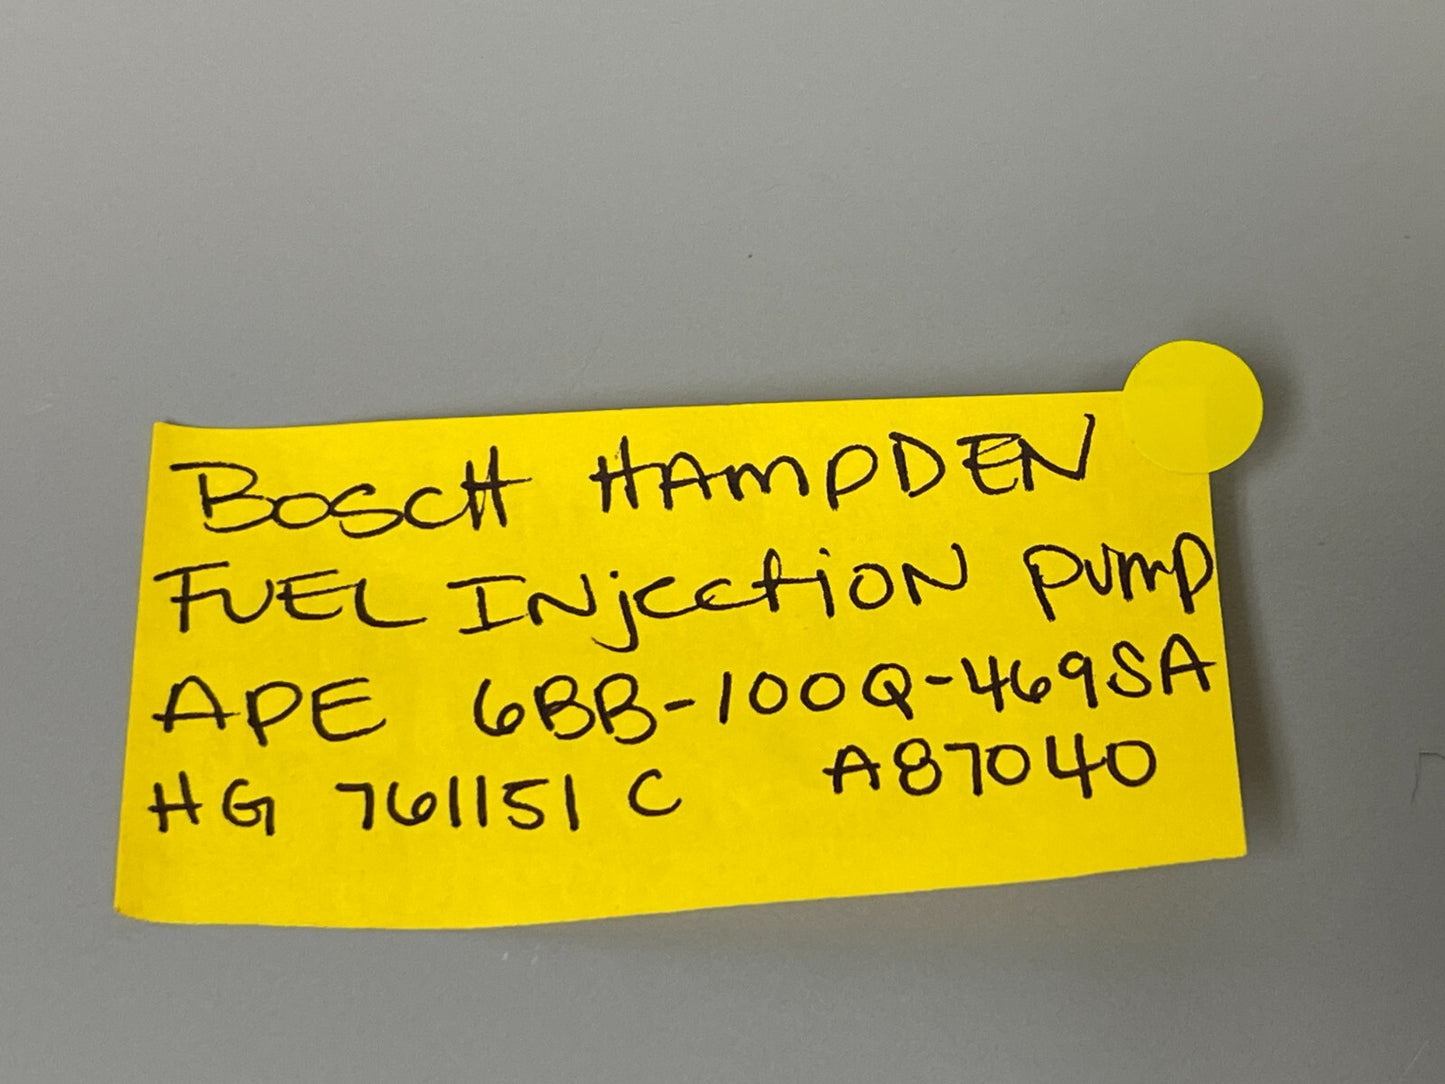 BOSCH HAMPDEN
FUEL INJECTION PUMP
APE 6BB-100Q-469SA
HG 761151 C A87040